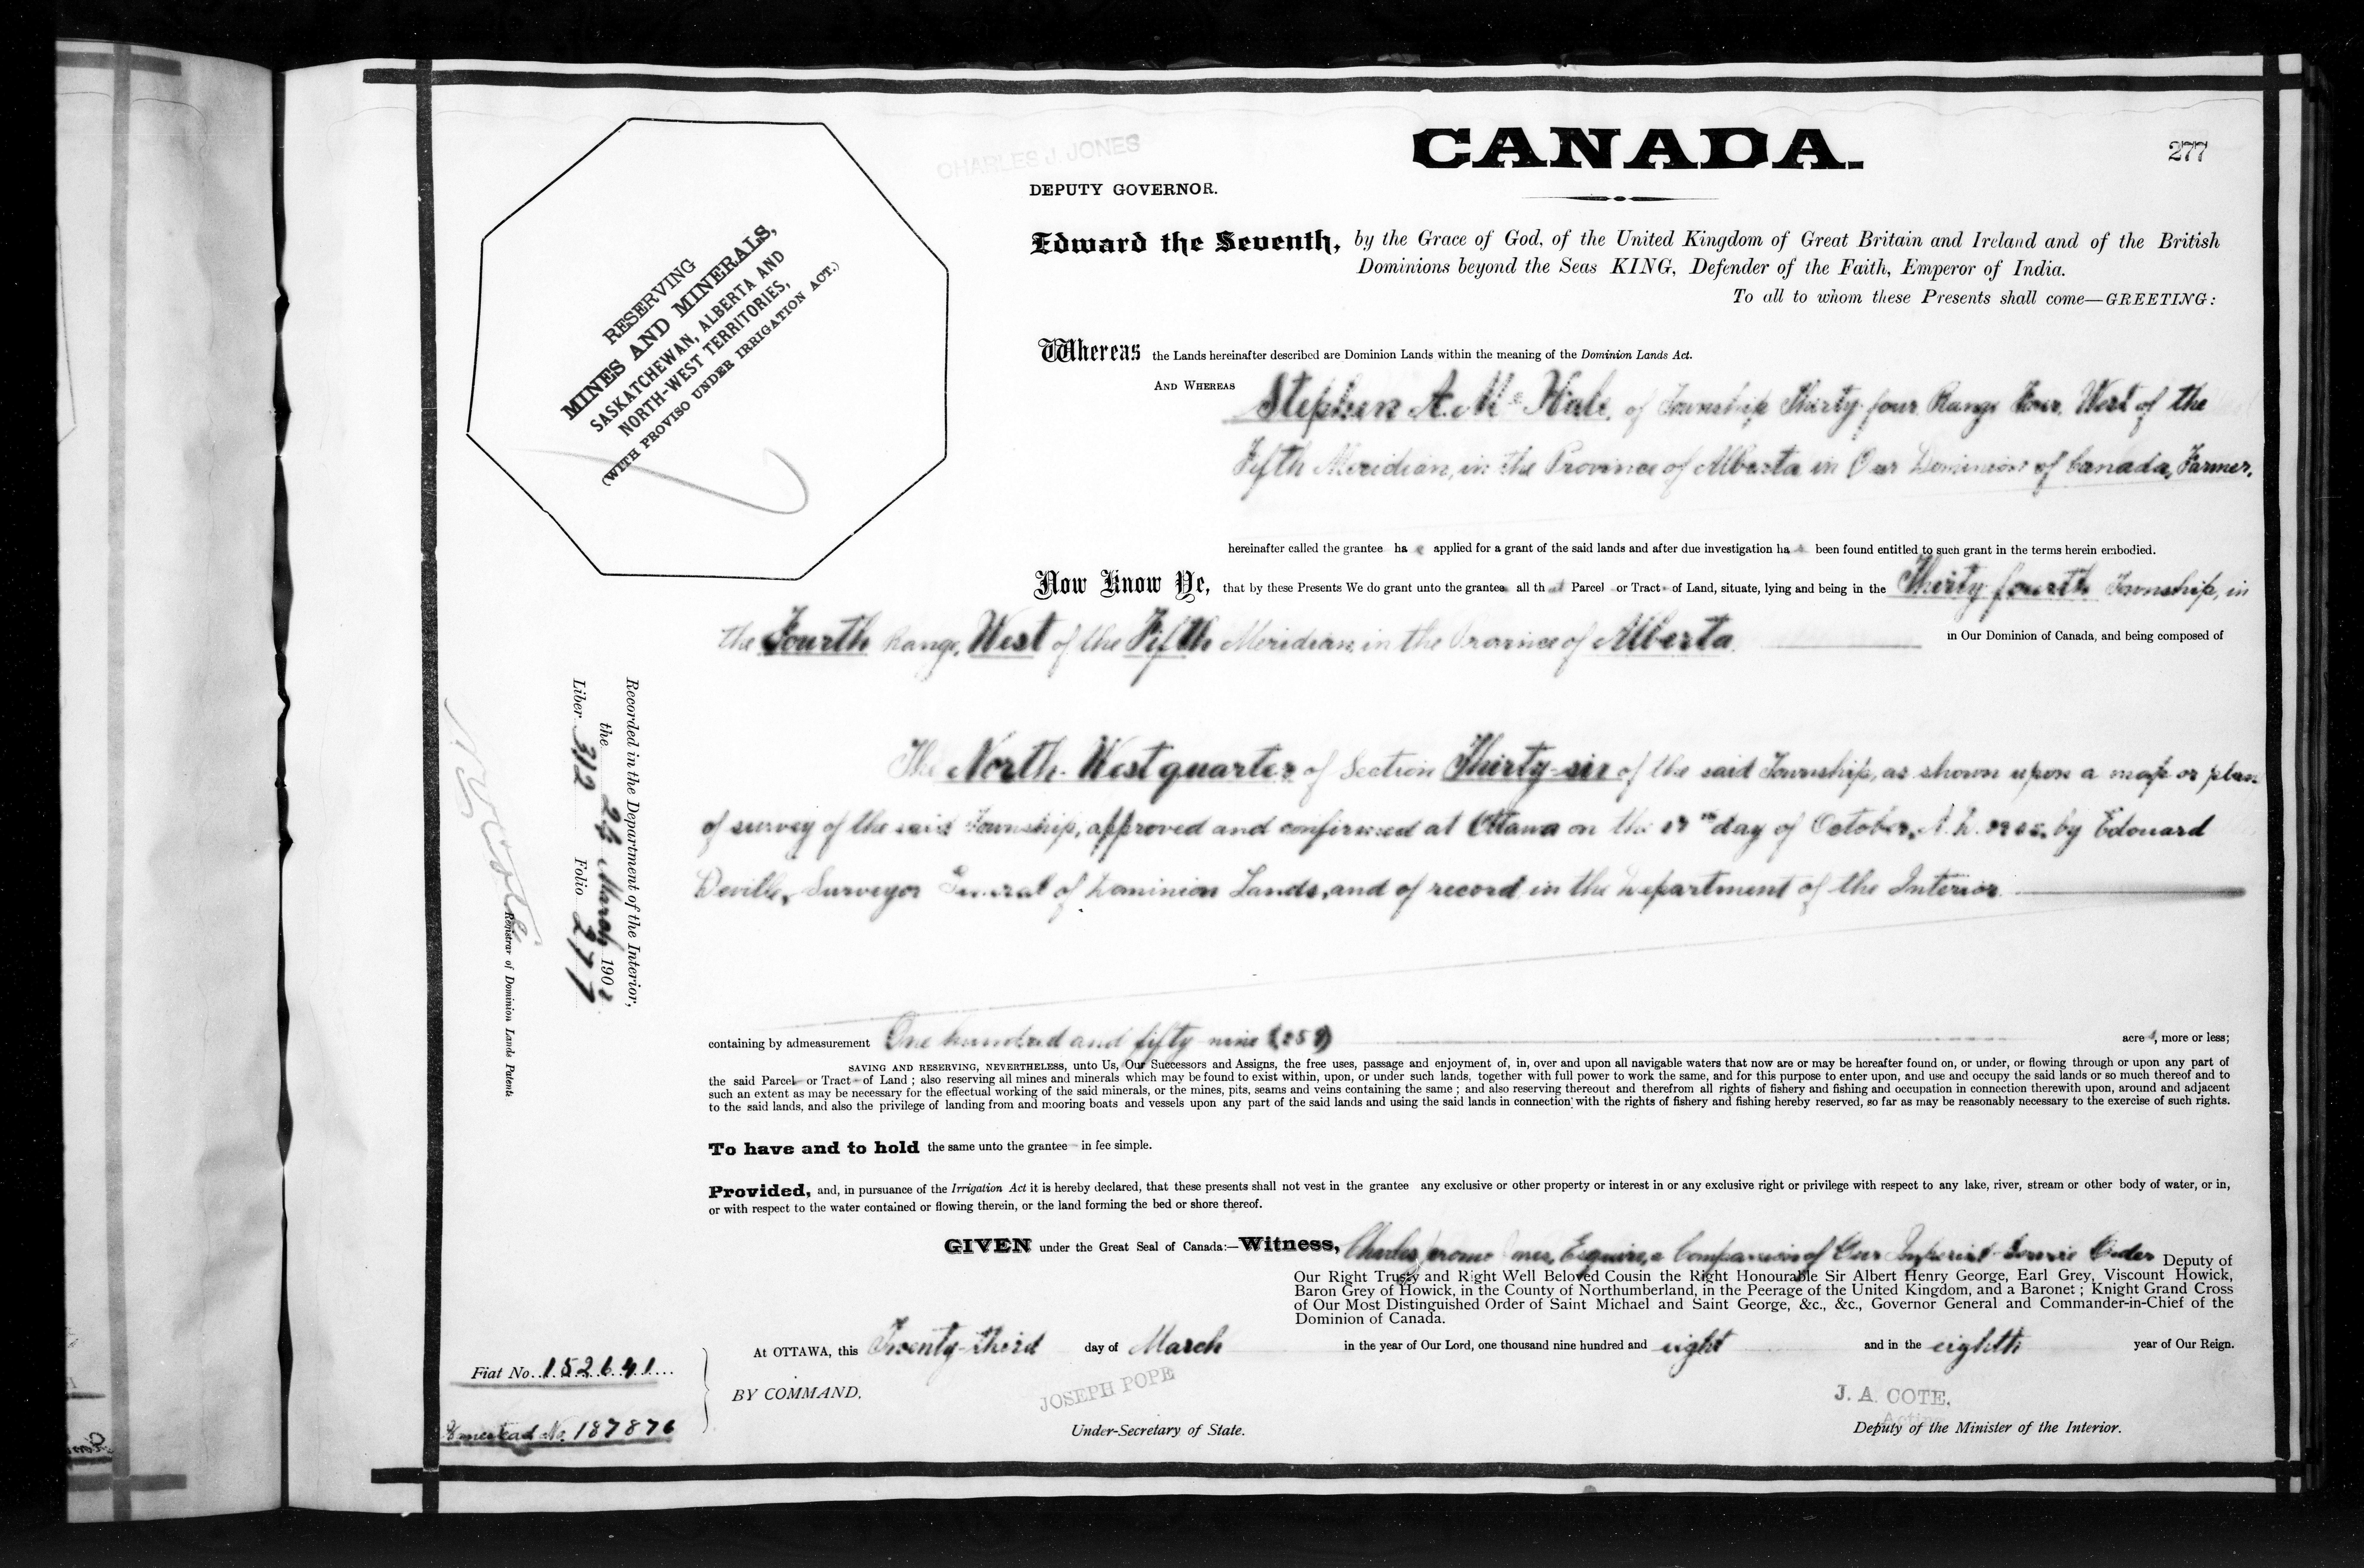 CANADA.
277
CHARLES J. JONES
DEPUTY GOVERNOR.
RESERVING
MINES AND MINERALS,
SASKATCHEWAN, ALBERTA AND
NORTH-WEST TERRITORIES,
(WITH PROVISO UNDER IRRIGATION ACT.)
Edward the Seventh, by the Grace of God, of the United Kingdom of Great Britain and Ireland and of the British
Dominions beyond the Seas KING, Defender of the Faith, Emperor of India.
To all to whom these Presents shall come—GREETING:
Whereas the Lands hereinafter described are Dominion Lands within the meaning of the Dominion Lands Act.
AND WHEREAS Stephen A. McHale, of Township Thirty-four, Range Four, West of the
Fifth Meridian, in the Province of Alberta in Our Dominion of Canada, Farmer,
hereinafter called the grantee has applied for a grant of the said lands and after due investigation has been found entitled to such grant in the terms herein embodied.
Now Know Ye, that by these Presents We do grant unto the grantee all that Parcel or Tract of Land, situate, lying and being in the Thirty-fourth Township, in
the Fourth Range, West of the Fifth Meridian, in the Province of Alberta in Our Dominion of Canada, and being composed of
The North-West quarter of Section Thirty-six of the said Township, as shown upon a map or plan
of survey of the said Township, approved and confirmed at Ottawa on the day of October, A.D. 1905, by Edouard
Deville, Surveyor General of Dominion Lands, and of record in the Department of the Interior.
Recorded in the Department of the Interior,
the March 190
Liber 312 Folio 277
Registrar of Dominion Lands Patents
containing by admeasurement One hundred and fifty nine (159) acres, more or less;
SAVING AND RESERVING, NEVERTHELESS, unto Us, Our Successors and Assigns, the free uses, passage and enjoyment of, in, over and upon all navigable waters that now are or may be hereafter found on, or under, or flowing through or upon any part of
the said Parcel or Tract of Land; also reserving all mines and minerals which may be found to exist within, upon, or under such lands, together with full power to work the same, and for this purpose to enter upon, and use and occupy the said lands or so much thereof and to
such an extent as may be necessary for the effectual working of the said minerals, or the mines, pits, seams and veins containing the same; and also reserving thereout and therefrom all rights of fishery and fishing and occupation in connection therewith upon, around and adjacent
to the said lands, and also the privilege of landing from and mooring boats and vessels upon any part of the said lands and using the said lands in connection with the rights of fishery and fishing hereby reserved, so far as may be reasonably necessary to the exercise of such rights.
To have and to hold the same unto the grantee in fee simple.
Provided, and, in pursuance of the Irrigation Act it is hereby declared, that these presents shall not vest in the grantee any exclusive or other property or interest in or any exclusive right or privilege with respect to any lake, river, stream or other body of water, or in,
or with respect to the water contained or flowing therein, or the land forming the bed or shore thereof.
GIVEN under the Great Seal of Canada:—Witness, Charles Jerome Jones, Esquire, a Companion of Our Imperial Service Order Deputy of
Our Right Trusty and Right Well Beloved Cousin the Right Honourable Sir Albert Henry George, Earl Grey, Viscount Howick,
Baron Grey of Howick, in the County of Northumberland, in the Peerage of the United Kingdom, and a Baronet; Knight Grand Cross
of Our Most Distinguished Order of Saint Michael and Saint George, &c., &c., Governor General and Commander-in-Chief of the
Dominion of Canada.
At OTTAWA, this Twenty-third day of March in the year of Our Lord, one thousand nine hundred and eight and in the eighth year of Our Reign.
Fiat No. 152641
BY COMMAND,
JOSEPH POPE
J. A. COTE,
Acting
Under-Secretary of State.
Deputy of the Minister of the Interior.
Homestead No. 187876